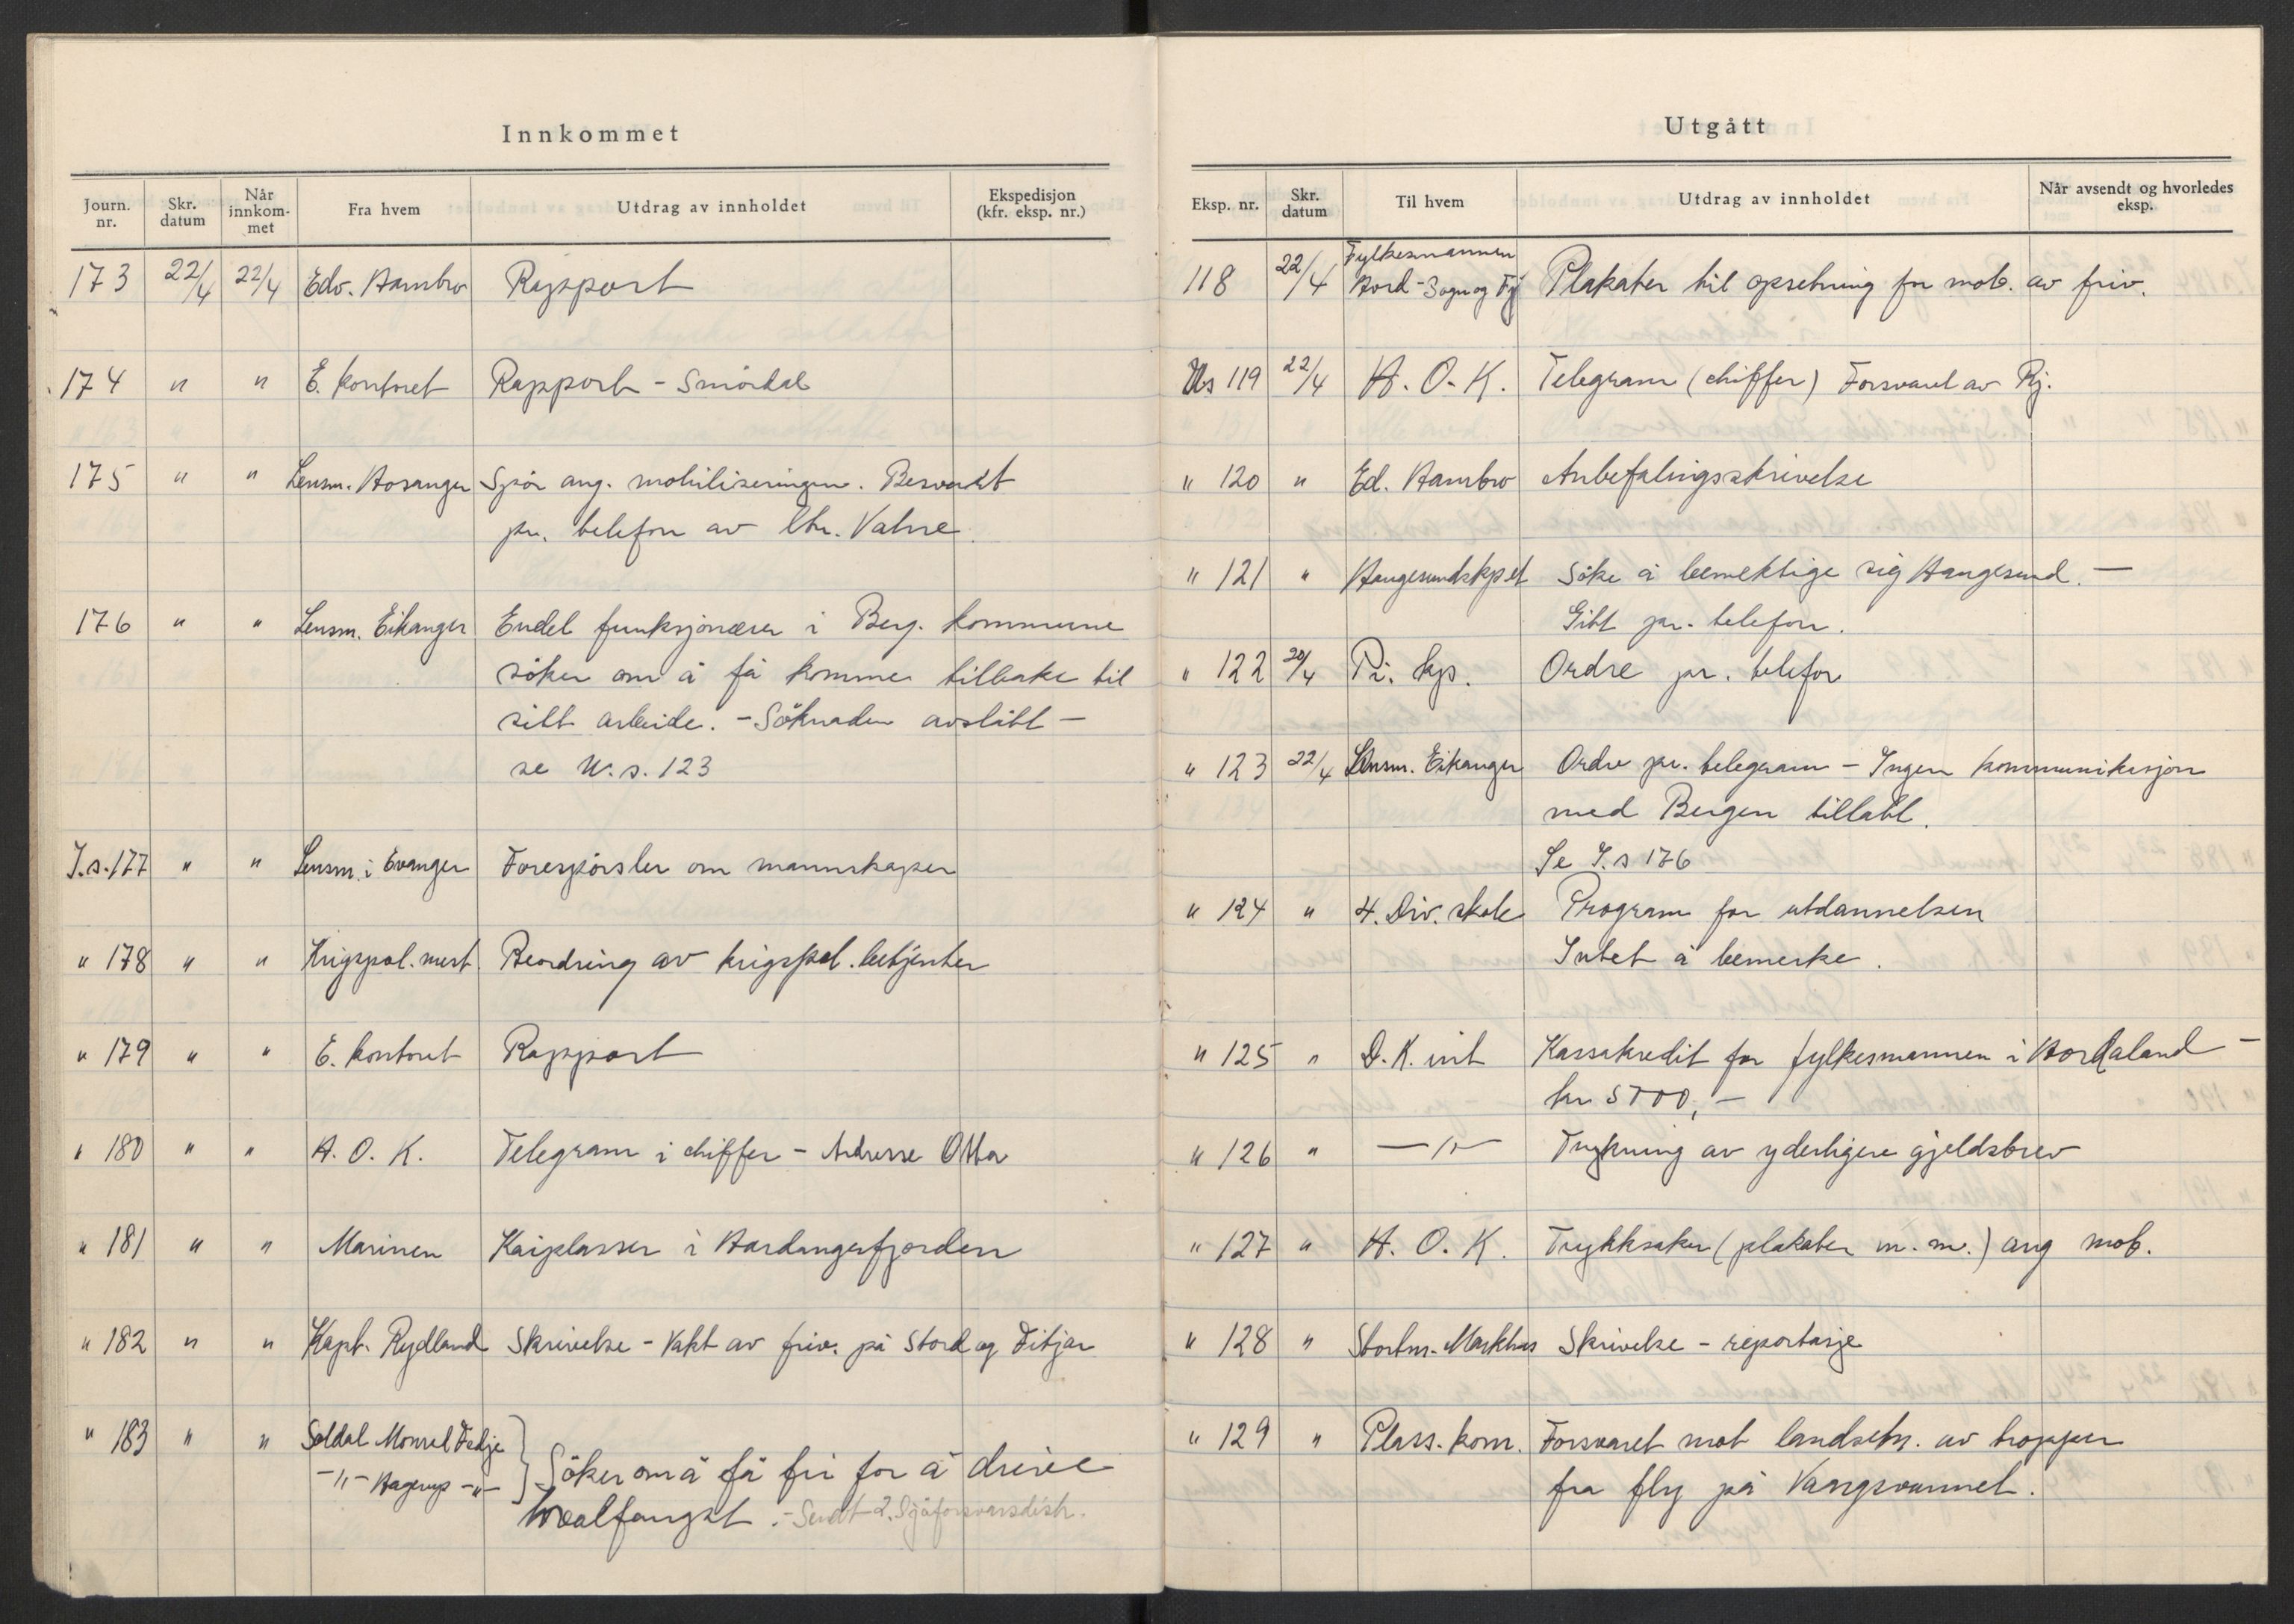 Innkommet
Journ. nr. Skr. datum Når innkommet Fra hvem Utdrag av innholdet Ekspedisjon (kfr. eksp. nr.)
173 22/4 22/4 Edv. Hambro Rapport
174 " " E. kontoret Rapport - Smørdal
175 " " Lensm. Hosanger Spör ang. mobiliseringen. Besvart
pr. telefon av ltn. Valvne.
176 " " Lensm. Eikanger Endel funksjonærer i Berg. kommune
söker om å få komme tilbake til
sitt arbeide. - Söknaden avslått -
se U.s. 123
I.s. 177 " " Lensm. i Evanger Forespörsler om mannskaper
" 178 " " Krigspol. mest. Beordring av krigspol. betjenter
" 179 " " E. kontoret Rapport
" 180 " " H. O. K. Telegram i chiffer - Adresse Otta
" 181 " " Marinen Kaiplasser i Hardangerfjorden
" 182 " " Kapt. Rydland Skrivelse - Vakt av friv. på Stord og Fitjar
" 183 " " Soldat Monsel Fedje
-"- Hagerup -"- Söker om å få fri for å drive
hvalfangst. - Sendt 2. Sjøforsvarsdistr.
Utgått
Eksp. nr. Skr. datum Til hvem Utdrag av innholdet Når avsendt og hvorledes eksp.
118 22/4 Fylkesmannen
Hord - Sogn og Fj Plakater til opsetning for mob. av friv.
Us 119 22/4 H. O. K. Telegram (chiffer) Forsvaret av Rj.
" 120 " Ed. Hambro Anbefalingsskrivelse
" 121 " Haugesundskp.et Söke å bemektige sig Haugesund. -
Gitt pr. telefon.
" 122 20/4 Pi. kp. Ordre pr. telefon
" 123 22/4 Lensm. Eikanger Ordre pr. telegram - Ingen kommunikasjon
med Bergen tillatt.
Se I.s 176
" 124 " 4. Div. skole Program for utdannelsen
Intet å bemerke.
" 125 " D. K. int Kassakredit for fylkesmannen i Hordaland -
kr 5000,-
" 126 " -"- Trykning av yderligere gjeldsbrev
" 127 " H. O. K. Trykksaker (plakater m. m.) ang mob.
" 128 " Stortm. Markhus Skrivelse - reportasje
" 129 " Plass. kom. Forsvaret mot landsetn. av tropper
fra fly på Vangsvannet.